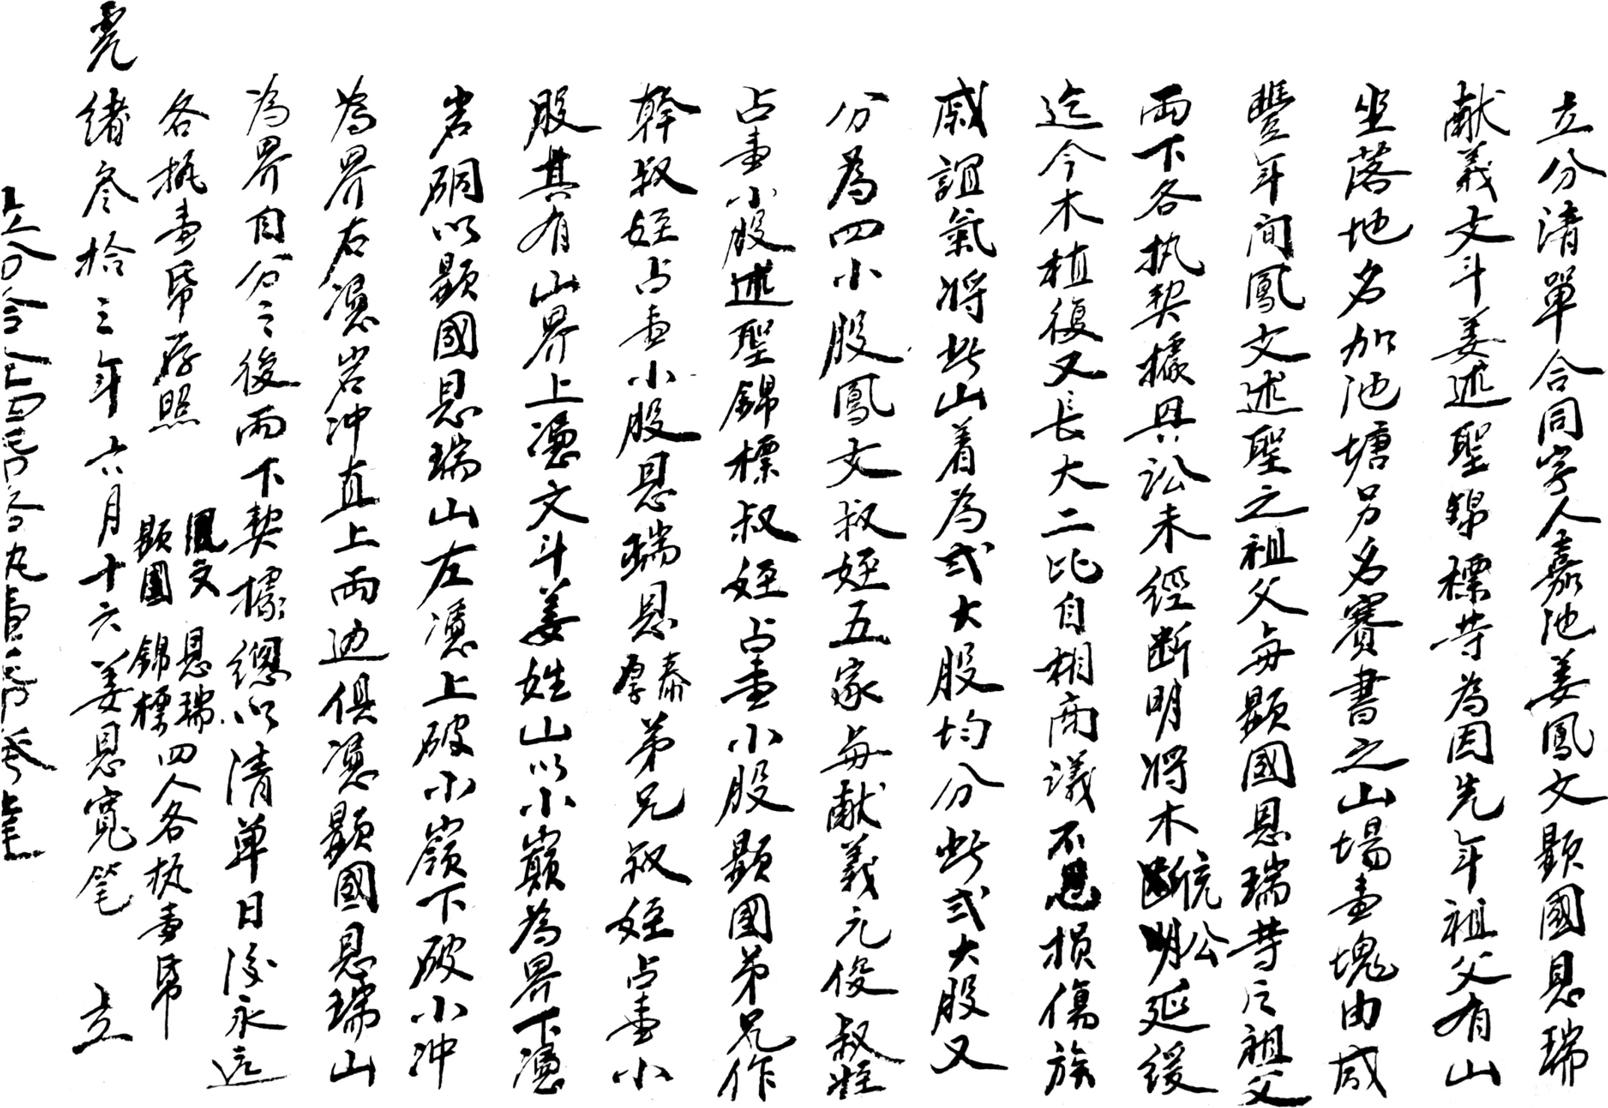 立分清單合同字人嘉池姜鳳文顯國恩瑞
献義文斗姜述聖錦標等為因先年祖父有山
坐落地名加池塘另名賽書之山場壹塊由咸
豐年間鳳文述聖之祖父與顯國恩瑞等之祖父
兩下各执契據興訟未經断明將木斷虎公明延缓
迄今木植復又長大二比自相商議不忍損傷族
戚誼氣將此山着為弍大股均分此弍大股又
分為四小股鳳文叔姪五家與献義元俊叔姪
占壹小股述聖錦標叔姪占壹小股顯國弟兄作
幹叔姪占壹小股恩瑞恩泰厚弟兄叔姪占壹小
股其有山界上憑文斗姜姓山以小巔為界下憑
岩硐以顯國恩瑞山左憑上破小嶺下破小冲
為界右憑岩冲直上兩边俱憑顯國恩瑞山
為界自分之後兩下契據總以清单日後永遠
各执壹昂存照
鳳文 恩瑞
顯國 錦標 四人各执壹昂
光緒叁拾三年六月十六姜恩寬笔 立